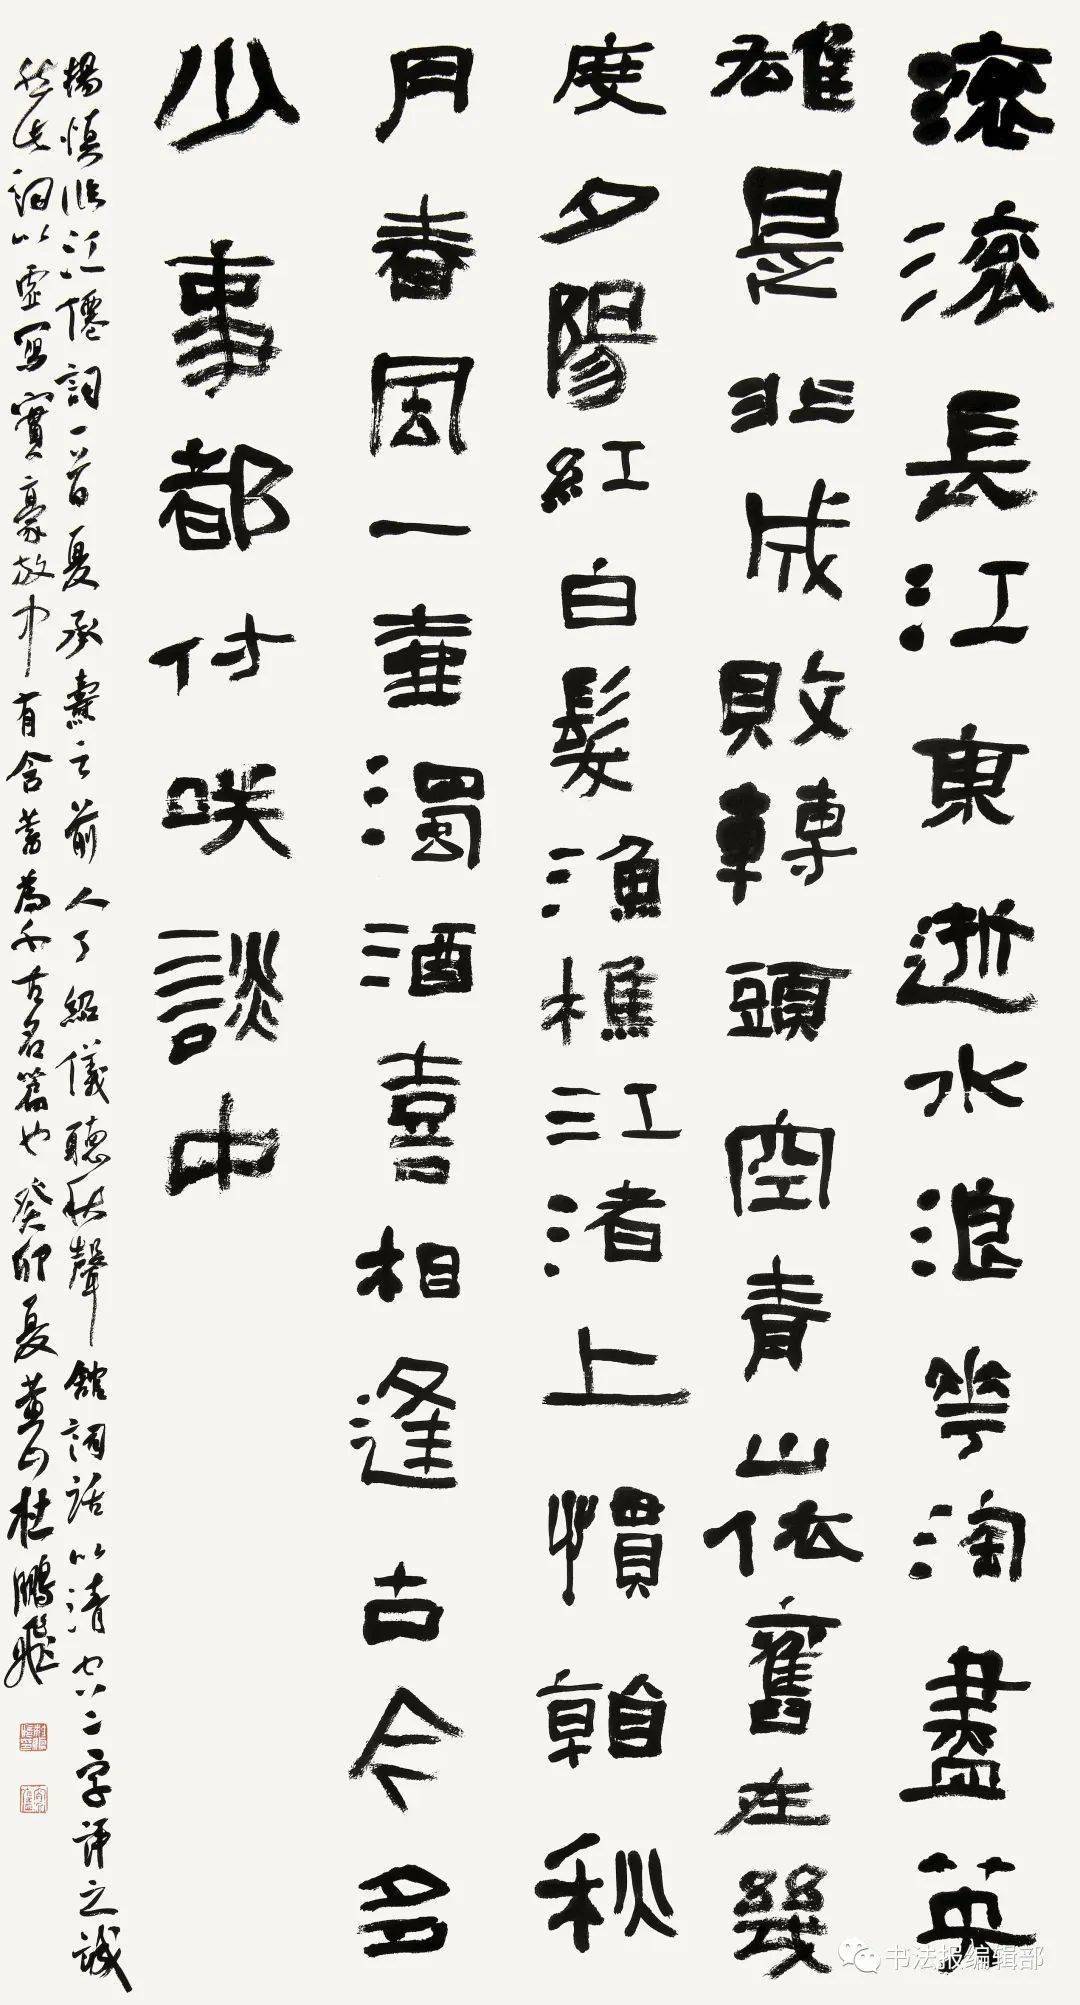 滾滾長江東逝水浪花淘盡英
雄是非成敗轉頭空青山依舊在幾
度夕陽紅白髮漁樵江渚上慣看秋
月春風一壺濁酒喜相逢古今多
少事都付咲談中
楊慎臨江僊詞一首夏承燾之前人丁紹儀聽秋聲館詞話以清空二字評之誠
然此詞以虛寫實豪放中有含蓄為千古名篇也癸卯夏黃山杜鵬飛
书法报编辑部